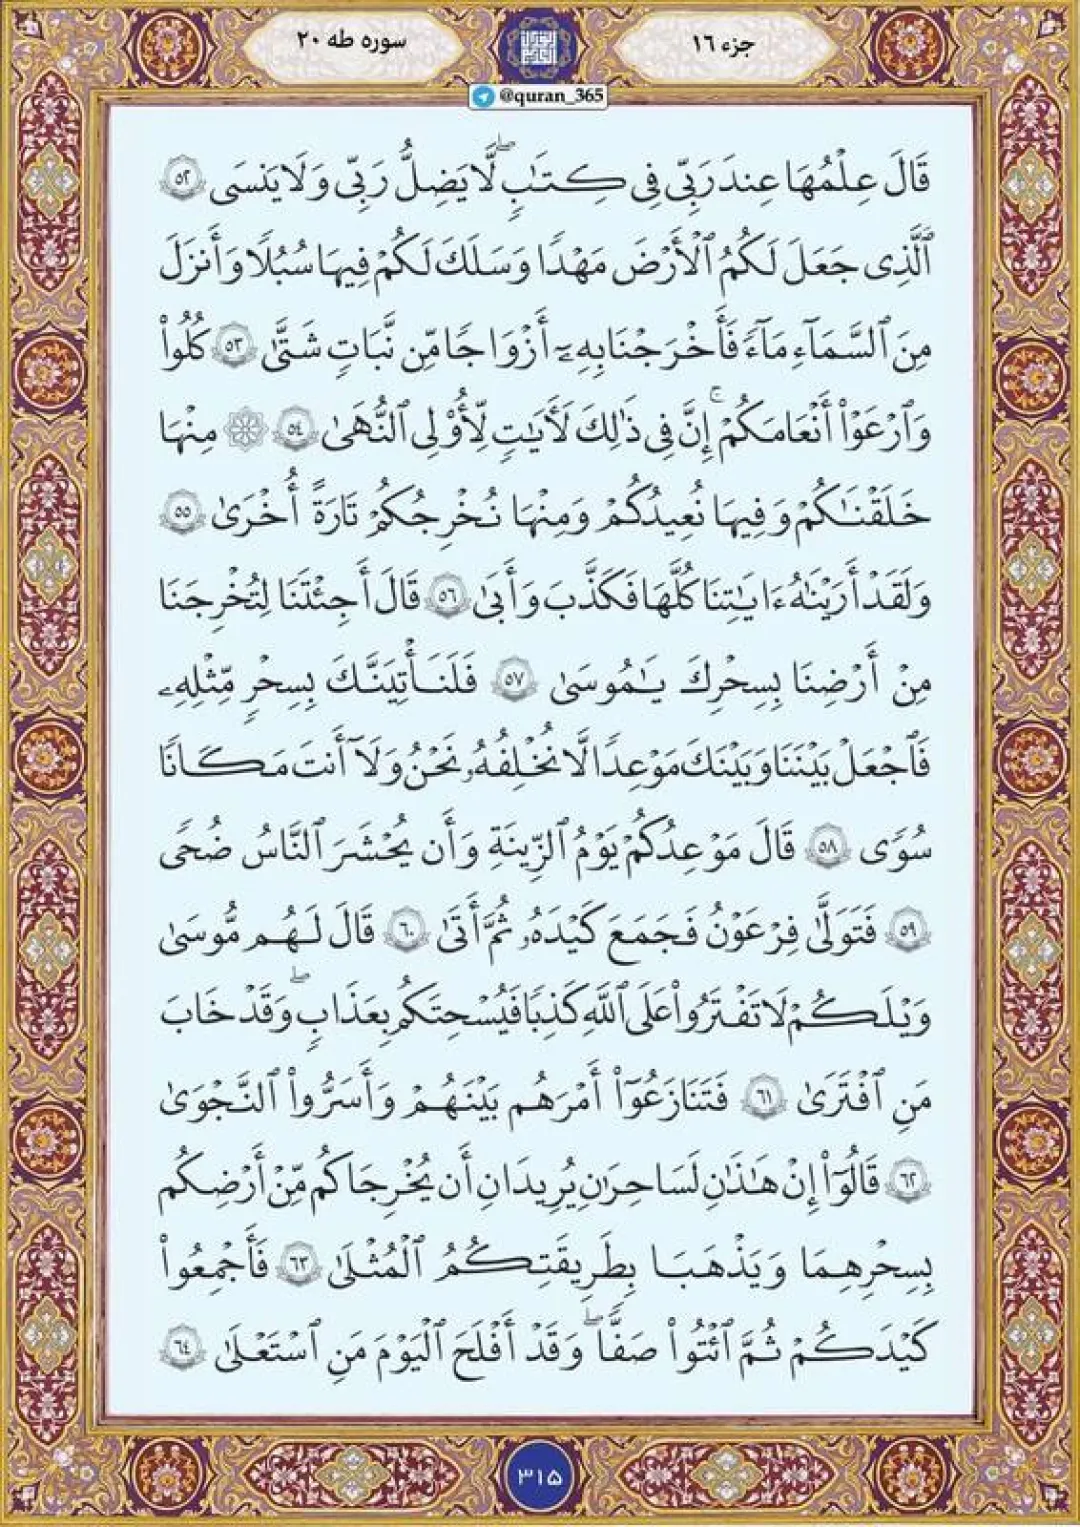 سوره طه ۲۰
جزء ۱۶
@quran_365
قَالَ عِلْمُهَا عِندَ رَبِّى فِى كِتَٰبٍۖ لَّا يَضِلُّ رَبِّى وَلَا يَنسَى ٥٢
ٱلَّذِى جَعَلَ لَكُمُ ٱلْأَرْضَ مَهْدًا وَسَلَكَ لَكُمْ فِيهَا سُبُلًا وَأَنزَلَ
مِنَ ٱلسَّمَآءِ مَآءً فَأَخْرَجْنَا بِهِۦٓ أَزْوَاجًا مِّن نَّبَاتٍ شَتَّىٰ ٥٣ كُلُوا۟
وَٱرْعَوْا۟ أَنْعَامَكُمْۚ إِنَّ فِى ذَٰلِكَ لَأَيَٰتٍ لِّأُو۟لِى ٱلنُّهَىٰ ٥٤ ۞ مِنْهَا
خَلَقْنَٰكُمْ وَفِيهَا نُعِيدُكُمْ وَمِنْهَا نُخْرِجُكُمْ تَارَةً أُخْرَىٰ ٥٥
وَلَقَدْ أَرَيْنَٰهُ ءَايَٰتِنَا كُلَّهَا فَكَذَّبَ وَأَبَىٰ ٥٦ قَالَ أَجِئْتَنَا لِتُخْرِجَنَا
مِنْ أَرْضِنَا بِسِحْرِكَ يَٰمُوسَىٰ ٥٧ فَلَنَأْتِيَنَّكَ بِسِحْرٍ مِّثْلِهِۦ
فَٱجْعَلْ بَيْنَنَا وَبَيْنَكَ مَوْعِدًا لَّا نُخْلِفُهُۥ نَحْنُ وَلَآ أَنتَ مَكَانًا
سُوًى ٥٨ قَالَ مَوْعِدُكُمْ يَوْمُ ٱلزِّينَةِ وَأَن يُحْشَرَ ٱلنَّاسُ ضُحًى
٥٩ فَتَوَلَّىٰ فِرْعَوْنُ فَجَمَعَ كَيْدَهُۥ ثُمَّ أَتَىٰ ٦٠ قَالَ لَهُم مُّوسَىٰ
وَيْلَكُمْ لَا تَفْتَرُوا۟ عَلَى ٱللَّهِ كَذِبًا فَيُسْحِتَكُم بِعَذَابٍۖ وَقَدْ خَابَ
مَنِ ٱفْتَرَىٰ ٦١ فَتَنَازَعُوٓا۟ أَمْرَهُم بَيْنَهُمْ وَأَسَرُّوا۟ ٱلنَّجْوَىٰ
٦٢ قَالُوٓا۟ إِنْ هَٰذَٰنِ لَسَاحِرَٰنِ يُرِيدَانِ أَن يُخْرِجَاكُم مِّنْ أَرْضِكُم
بِسِحْرِهِمَا وَيَذْهَبَا بِطَرِيقَتِكُمُ ٱلْمُثْلَىٰ ٦٣ فَأَجْمِعُوا۟
كَيْدَكُمْ ثُمَّ ٱئْتُوا۟ صَفًّاۖ وَقَدْ أَفْلَحَ ٱلْيَوْمَ مَنِ ٱسْتَعْلَىٰ ٦٤
۳۱۵